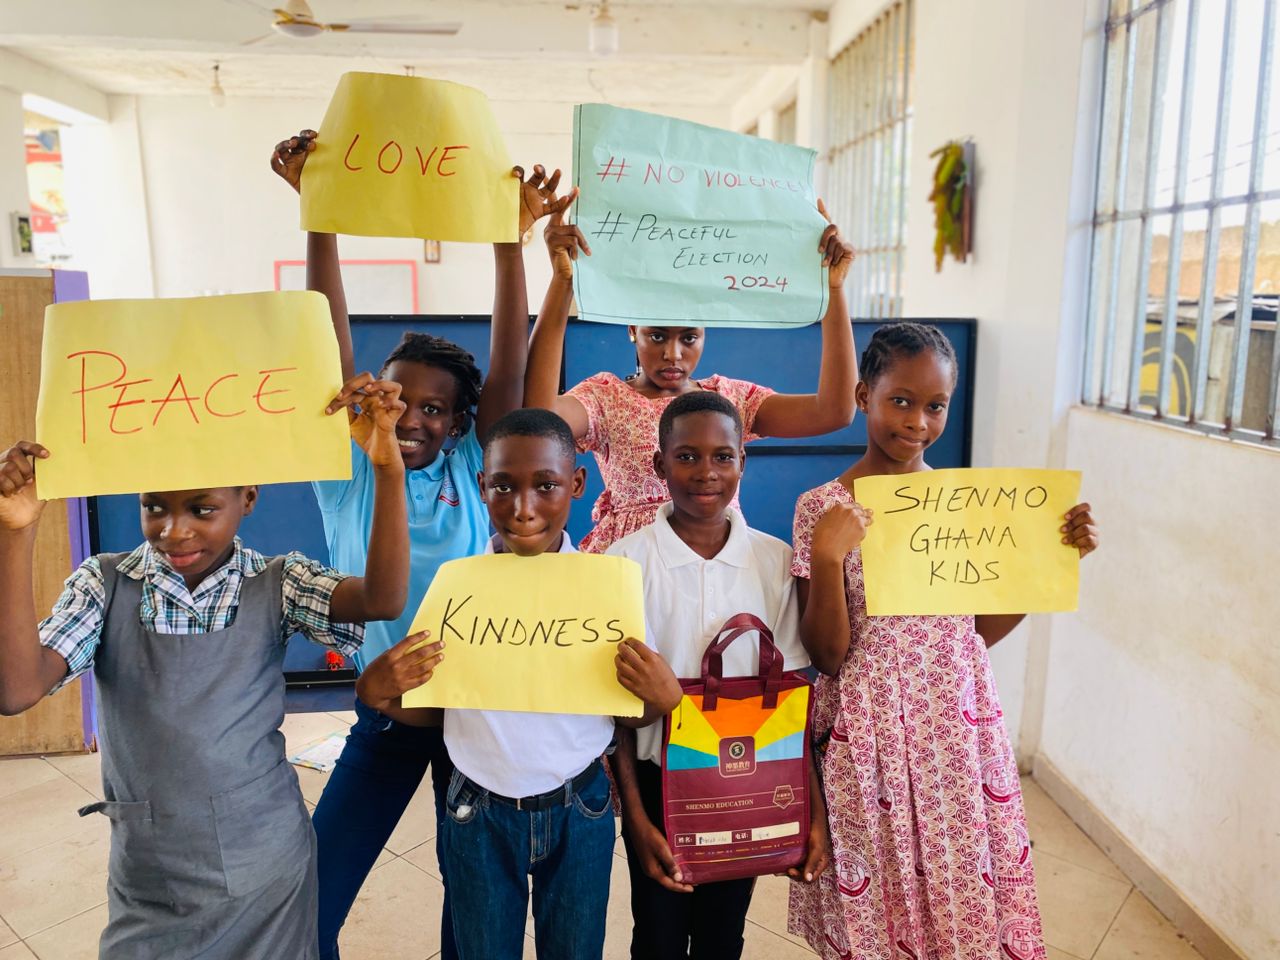 LOVE
# NO VIOLENCE
# PEACEFUL
ELECTION
2024
PEACE
KINDNESS
SHENMO
GHANA
KIDS
神墨教育
SHENMO EDUCATION
姓名:
电话: